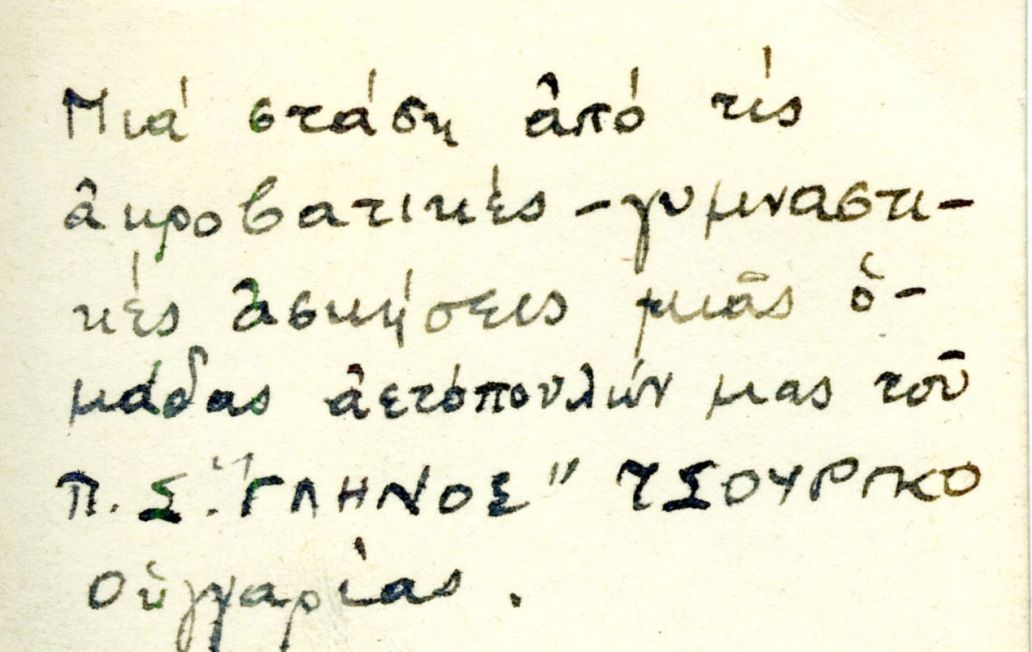 Μιά στάση ἀπό τίς
ἀκροβατικές -γυμναστι-
κές ἀσκήσεις μιᾶς ὁ-
μάδας ἀετόπουλών μας τοῦ
Π.Σ. "ΓΛΗΝΟΣ" ΤΣΟΥΡΓΚΟ
Οὑγγαρίας.